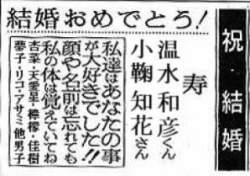 結婚おめでとう！
祝・結婚
寿
温水 和彦くん
小鞠 知花さん
私達はあなたの事
が大好きでした!!
顔や名前は忘れても
私の体は覚えていてね
杏菜・天愛星・檸檬・佳樹
夢子・リコ・アサミ 他男子